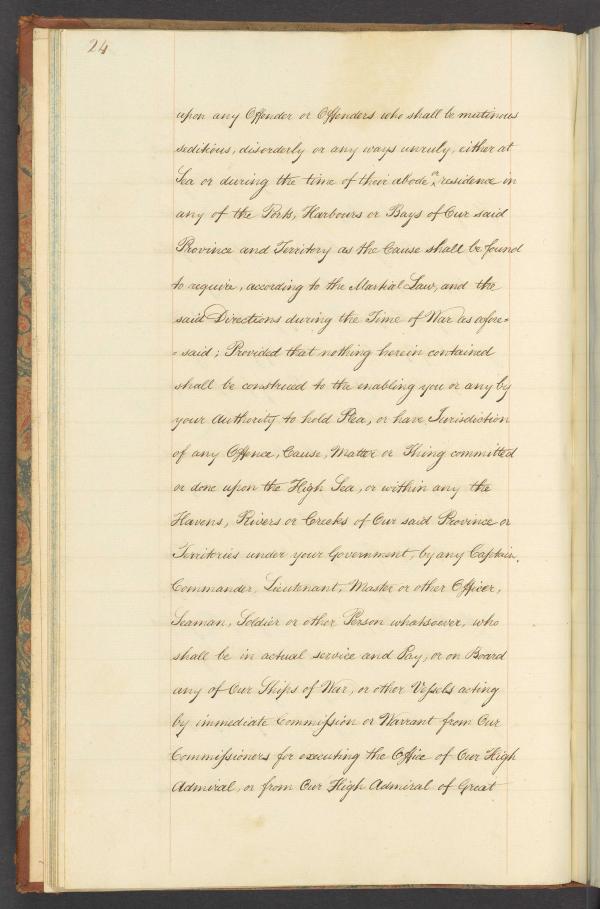 24
upon any Offender or Offenders who shall be mutinous
seditious, disorderly or any ways unruly, either at
Sea or during the time of their abode or residence in
any of the Ports, Harbours or Bays of Our said
Province and Territory as the Cause shall be found
to require, according to the Martial Law, and the
said Directions during the Time of War as afore=
=said; Provided that nothing herein contained
shall be construed to the enabling you or any by
your Authority to hold Plea, or have Jurisdiction
of any Offence, Cause, Matter or Thing committed
or done upon the High Sea, or within any the
Havens, Rivers or Creeks of Our said Province or
Territories under your Government, by any Captain,
Commander, Lieutenant, Master or other Officer,
Seaman, Soldier or other Person whatsoever, who
shall be in actual service and Pay, or on Board
any of Our Ships of War, or other Vessels acting
by immediate Commission or Warrant from Our
Commissioners for executing the Office of Our High
Admiral, or from Our High Admiral of Great